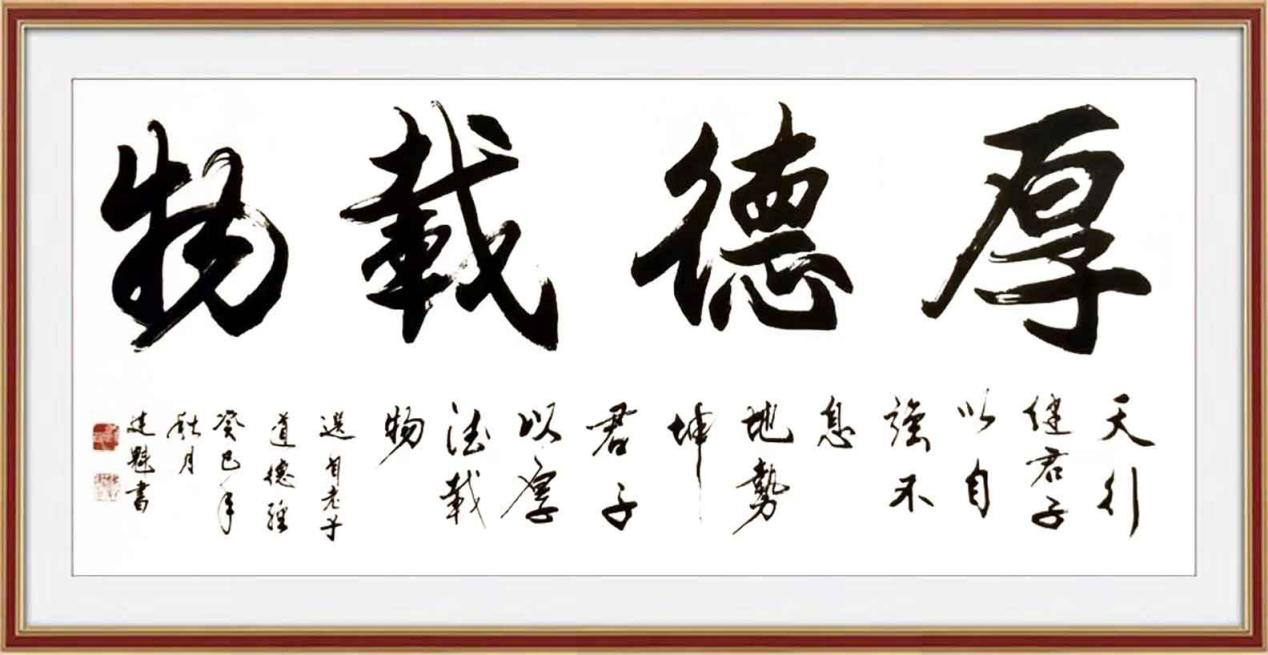 厚德載物
天行
健君子
以自
強不
息
地勢
坤
君子
以厚
德載
物
選自老子
道德經
癸巳年
秋月
建魁書